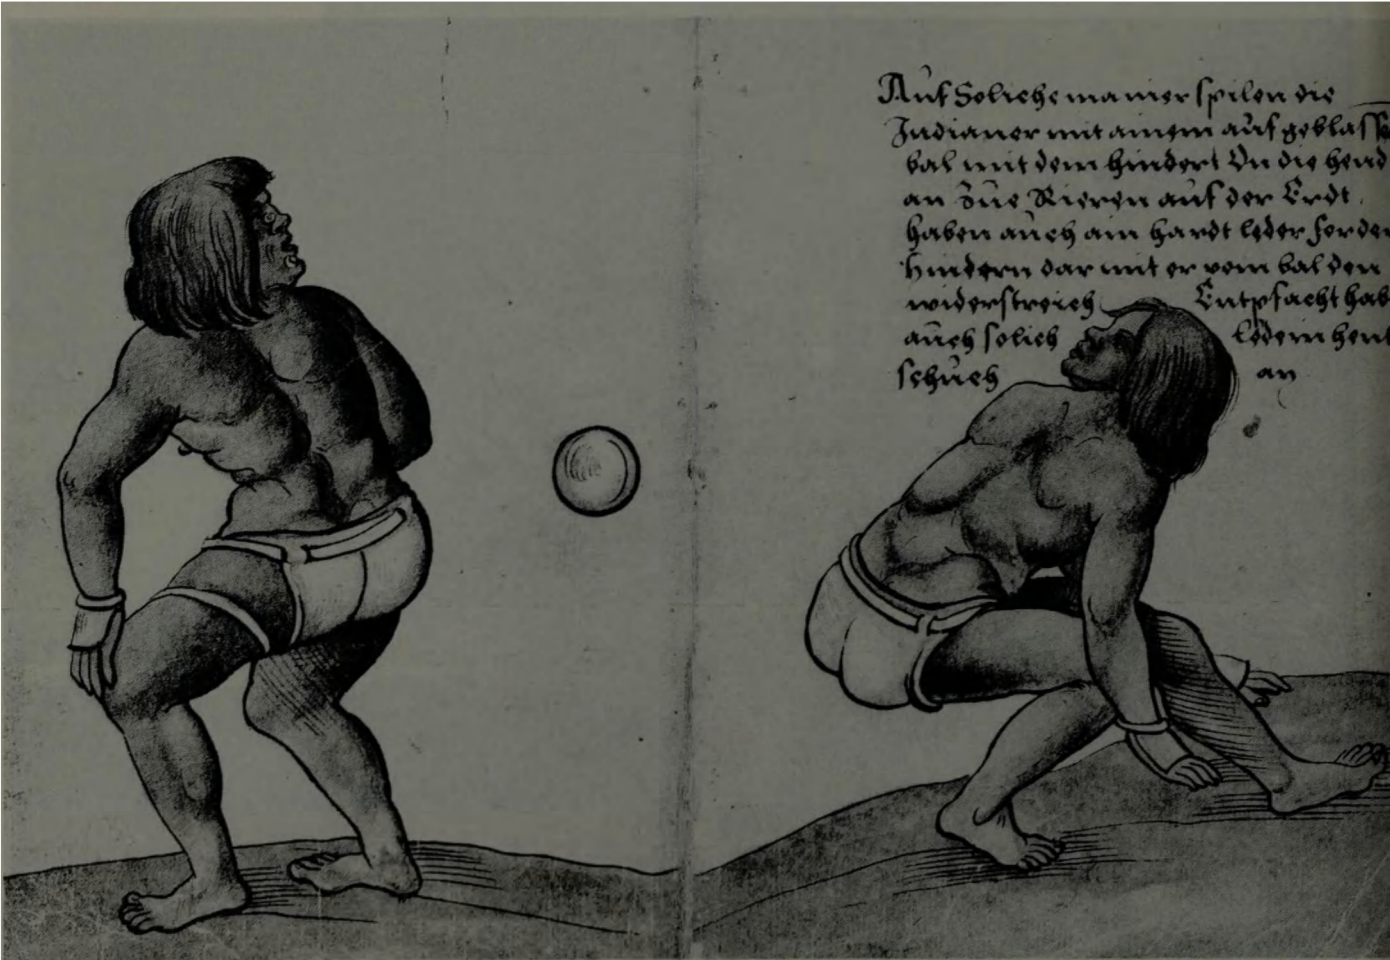 Auf Soliche manier spilen die
Indianer mit ainem auf geblassē
bal mit dem hindert On die hend
an Zue Rieren auf der Erdt
haben auch ain hardt leder forder
hindern dar mit er vom bal den
widerstreich Entpfacht hab
auch solich ledern hent
schuch an